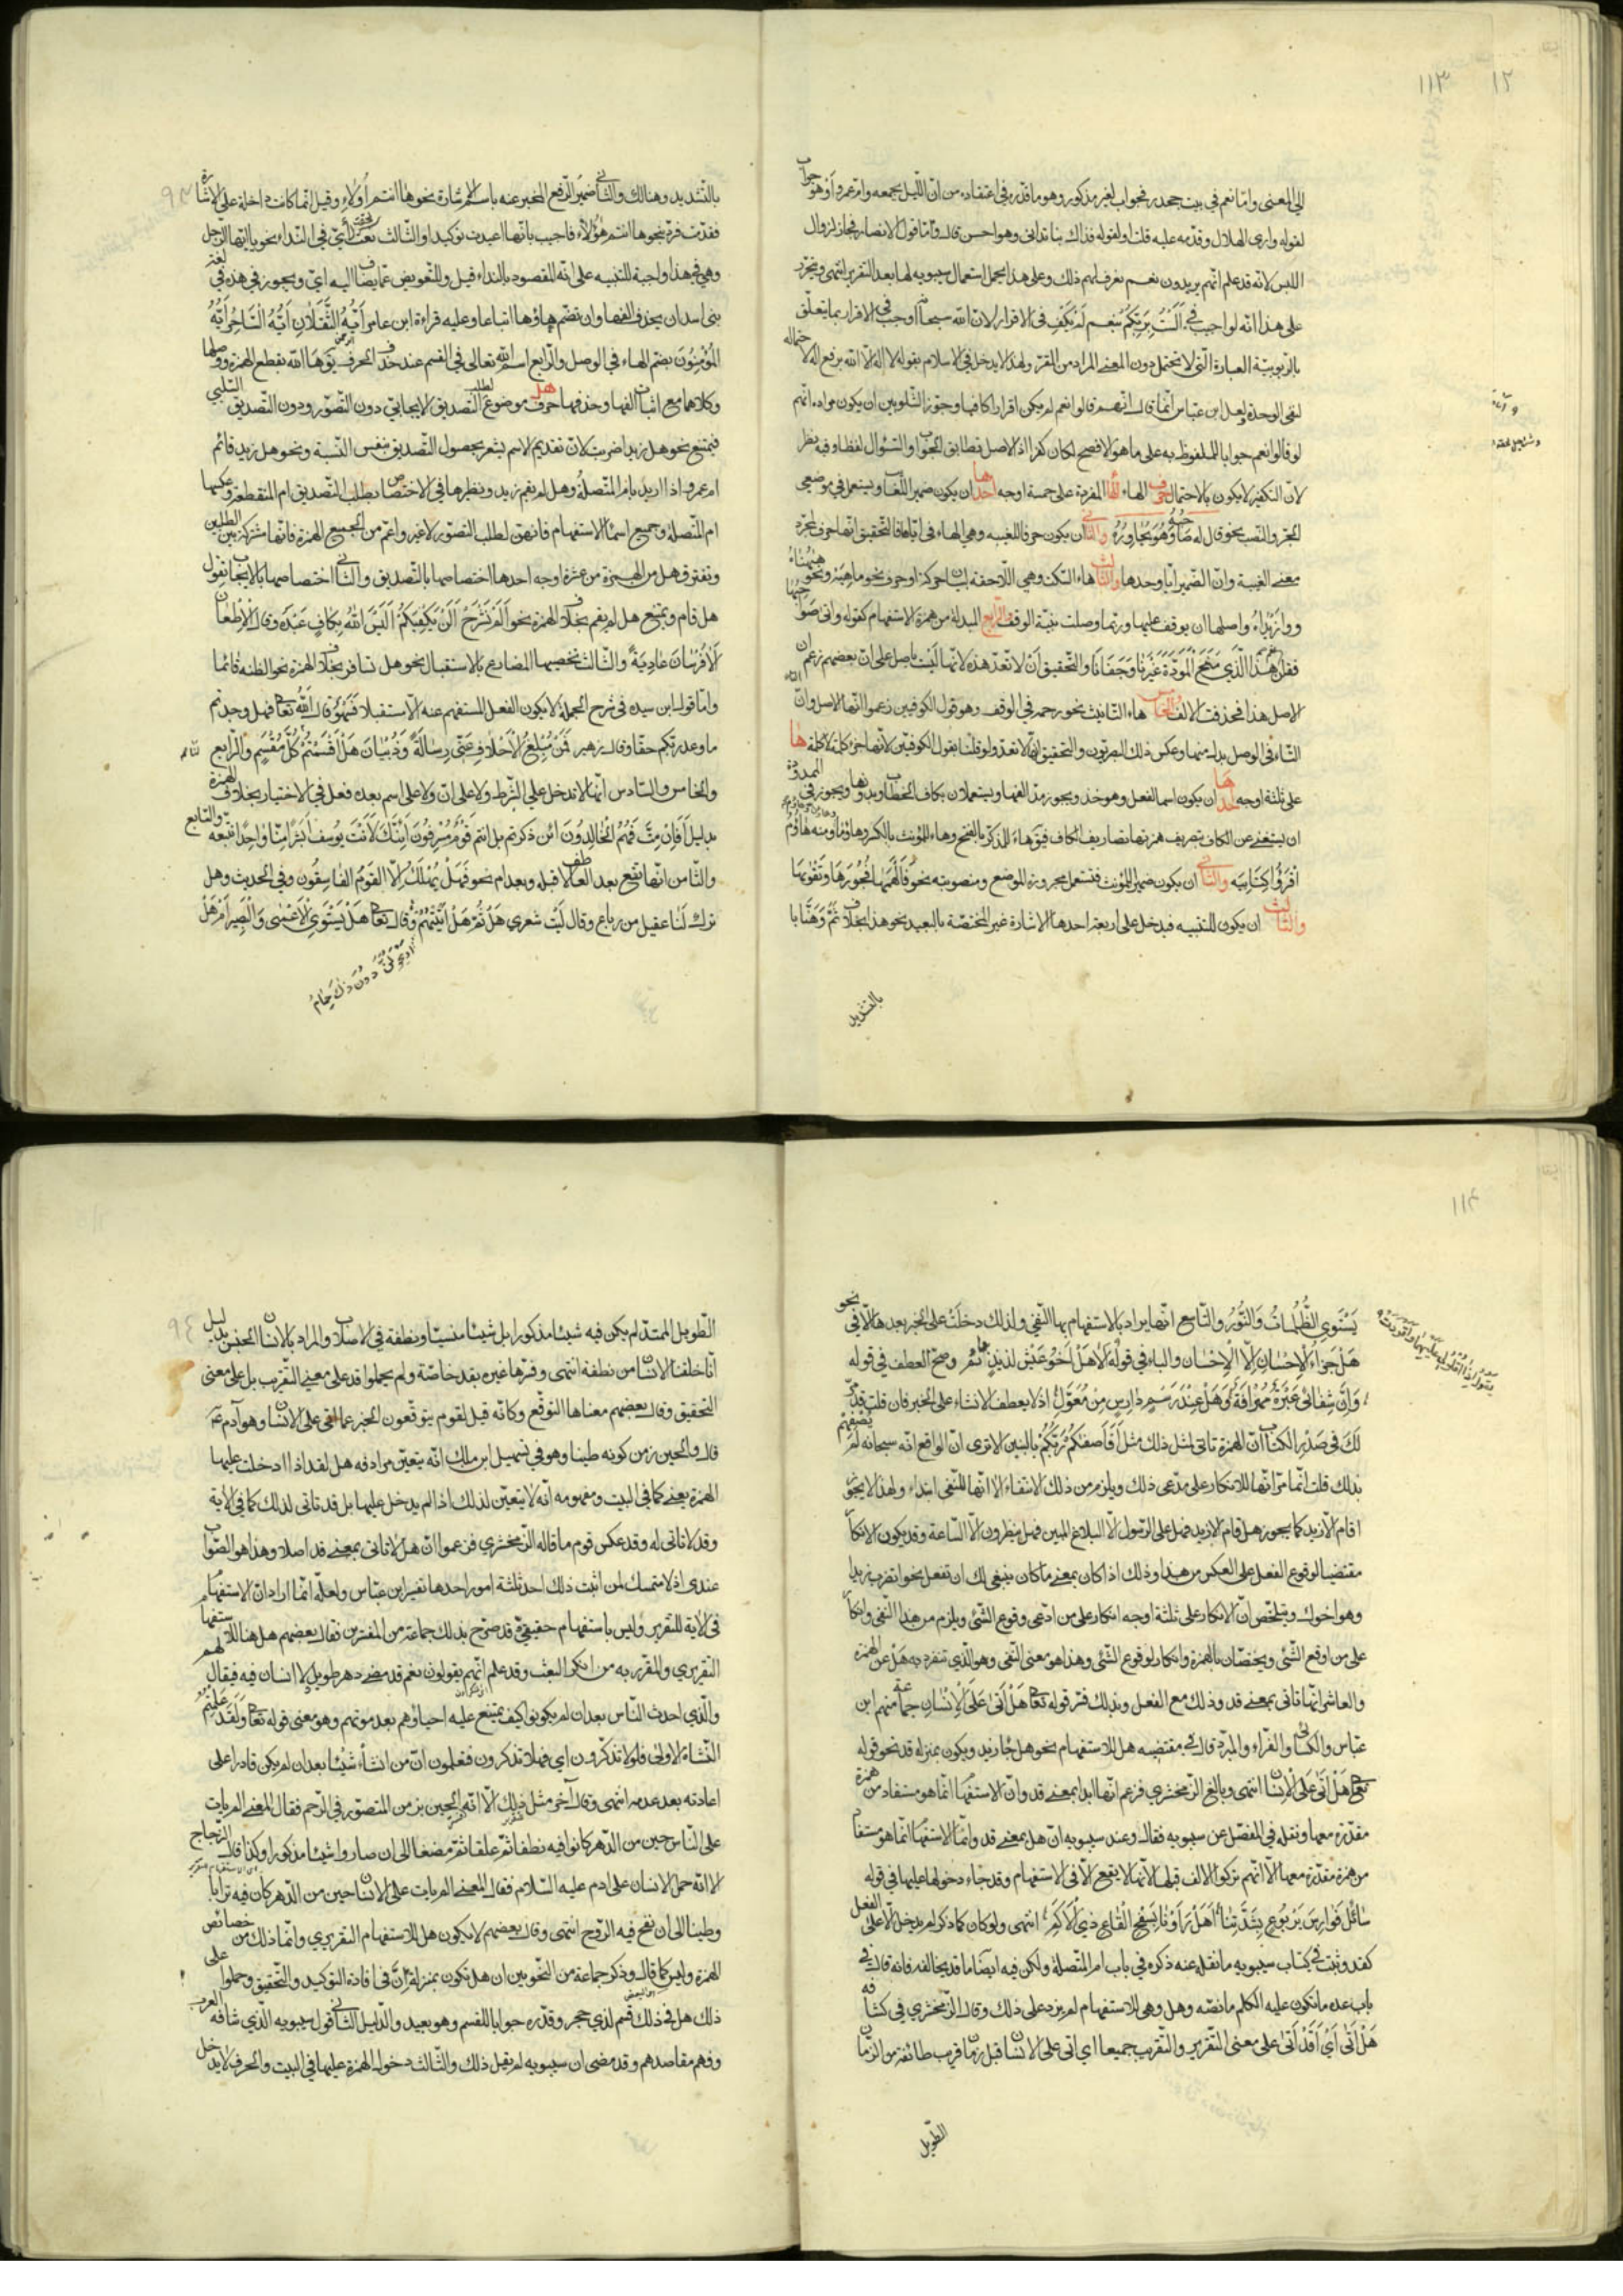 ١١٣ ١٢
الى المعنى وامّا نعم في بيت جحدر فجواب لغير مذكور وهو ما قدّره في اعتقاده من انّ الليل يجمعه وامّ عمرو أو هو جواب
لقوله وارى الهلال وقدّمه عليه قلت او لقوله فذاك بنا تدانى وهو احسن قال وامّا قول الانصار فجاز لزوال
اللبس لانّه قد علم انّهم يريدون نعم نعرف لهم ذلك وعلى هذا يحمل استعمال سيبويه لها بعد التقرير انتهى ويتحرّر
على هذا انّه لو اجيب في اَلَسْتُ بِرَبِّكُمْ بنعم لم يكف في الاقرار لانّ الله سبحانه اوجب في الاقرار بما يتعلّق
بالرّبوبيّة العبارة الّتي لا تحتمل دون المعنى المراد من المقرّ ولهذا لا يدخل في الاسلام بقوله لا اله الّا الله برفع اله لاحتماله
لنفى الوحدة ولعلّ ابن عبّاس انّما قال انّهم لو قالوا نعم لم يكن اقرارا كافيا وجوّز الشّلوبين ان يكون مراده انّهم
لو قالوا نعم جوابا للملفوظ به على ما هو الافصح لكان كفرا اذ الاصل تطابق الجواب والسّؤال لفظا وفيه نظر
لانّ التكفير لا يكون بالاحتمال حرف الهاء الهاء المفردة على خمسة اوجه احدها ان يكون ضميرا للغائب ويستعمل في موضعى
الجرّ والنّصب نحو قال له صاحبه وهو يحاوره والثّاني ان يكون حرفا للغيبة وهي الهاء في ايّاه فالتّحقيق انّها حرف لمجرّد
معنى الغيبة وانّ الضّمير ايّا وحدها والثّالث هاء السّكت وهي اللّاحقة لبيان حركة او حرف نحو ماهيه ونحو ههناه
ووازيداه واصلها ان يوقف عليها وربّما وصلت بنيّة الوقف الرّابع المبدلة من همزة الاستفهام كقوله واتى صواحبها
فقلن هذا الّذي منح المودّة غيرنا وجفانا والتّحقيق ان لا تعدّ هذه لانّها ليست باصل على انّ بعضهم زعم انّ
الاصل هذا فحذفت الالف الخامس هاء التّانيث نحو رحمه في الوقف وهو قول الكوفيين زعموا انّها الاصل وانّ
التّاء في الوصل بدل منها وعكس ذلك البصريّون والتّحقيق ان لا تعدّ ولو قلنا بقول الكوفيّين لانّها جزء كلمة لا كلمة ها
على ثلثة اوجه احدها ان يكون اسما لفعل وهو خذ ويجوز مدّ الفها ويستعملان بكاف الخطاب وبدونها ويجوز في الممدودة
ان يستغنى عن الكاف بتصريف همزتها تصاريف الكاف فيقال هاءَ للمذكّر بالفتح وهاء للمؤنث بالكسر وهاؤما وهاؤنّ وهاؤم ومنه هاؤم
اقرؤا كتابيه والثّاني ان يكون ضمير المؤنث فتستعمل مجرورة الموضع ومنصوبته نحو فالهمها فجورها وتقويها
والثّالث ان يكون للتنبيه فيدخل على اربعة احدها الاشارة غير المختصّة بالبعيد نحو هذا بخلاف ثمّ وهنّا با
بالتّشديد
٩٣
بالتّشديد وهنالك والثّاني ضمير الرّفع المخبر عنه باسم الاشارة نحو ها انتم اولاء وقيل انّما كانت داخلة على الاشارة
فقدّمت فردّ بنحو ها انتم هؤلاء فاجيب بانّها اعيدت توكيدا والثّالث نعت أيّ في النّداء نحو يا ايّها الرّجل
وهي في هذا واجبة للتنبيه على انّه المقصود بالنداء قيل وللتّعويض عمّا يضاف اليه ايّ ويجوز في هذه في لغة
بنى اسد ان يحذف الفها وان تضمّ هاؤها اتباعا وعليه قراءة ابن عامر أيّهُ الثّقلان ايّهُ السّاحر ايّهُ
المؤمنون بضمّ الهاء في الوصل والرّابع اسم الله تعالى في القسم عند حذف الحرف يقال ها الله بقطع الهمزة ووصلها
وكلاهما مع اثبات الفها وحذفها هل حرف موضوع لطلب التّصديق الايجابيّ دون التّصوّر ودون التّصديق السّلبي
فيمتنع نحو هل زيدا ضربت لانّ تقديم الاسم يشعر بحصول التّصديق بنفس النّسبة ونحو هل زيد قائم
ام عمرو اذا اريد بام المتّصلة وهل لم يقم زيد ونظيرها في الاختصاص بطلب التّصديق ام المنقطعة وعكسها
ام المتّصلة وجميع اسماء الاستفهام فانّهنّ لطلب التّصوّر لا غير واعمّ من الجميع الهمزة فانّها مشتركة بين الطلبين
وتفترق هل من الهمزة من عشرة اوجه احدها اختصاصها بالتّصديق والثّاني اختصاصها بالايجاب تقول
هل قام ويمتنع هل لم يقم بخلاف الهمزة نحو ألم نشرح ألن يكفيكم أليس الله بكاف عبده وقال ألا طعان
ألا فرسان عادية والثّالث تخصيصها المضارع بالاستقبال نحو هل تسافر بخلاف الهمزة نحو اتظنّه قائما
وامّا قول ابن سيده في شرح الجمل لا يكون الفعل المستفهم عنه الّا مستقبلا فسهو قال الله تعالى فهل وجدتم
ما وعد ربّكم حقّا وقال زهير فمن مبلغ الاحلاف عنّي رسالة وذبيان هل أقسمتم كلّ مقسم والرّابع
والخامس والسّادس انّها لا تدخل على الشّرط ولا على انّ ولا على اسم بعده فعل في الاختيار بخلاف الهمزة
بدليل أفإن متّ فهم الخالدون ائن ذكرتم بل انتم قوم مسرفون ائنّك لانت يوسف أبشرا منّا واحدا نتّبعه والسّابع
والثّامن انّها تقع بعد العاطف لا قبله وبعد ام نحو فهل يهلك الّا القوم الفاسقون وفي الحديث وهل
ترك لنا عقيل من رباع وقال ليت شعري هل ثمّ هل آتينهم وقال تعالى هل يستوي الاعمى والبصير أم هل
دون ذاك حمام
١١٤
يستوي الظّلمات والنّور والتّاسع انّها يراد بالاستفهام بها النّفي ولذلك دخلت على الخبر بعدها الّا في نحو
هل جزاء الإحسان إلّا الإحسان والباء في قوله ألا هل أخو عيش لذيذ بدائم وصحّ العطف في قوله
وإنّ شفائي عبرة مهراقة وهل عند رسم دارس من معوّل اذ لا يعطف الانشاء على الخبر فان قلت قد مرّ
لك في صدر الكتاب انّ الهمزة تاتى لمثل ذلك مثل أفأصفيكم ربّكم بالبنين الا ترى انّ الواقع انّه سبحانه لم يصفهم
بذلك قلت انّما مرّ انّها للانكار على مدّعى ذلك ويلزم من ذلك الانتفاء لا انّها للنّفى ابتداء ولهذا لا يجوز
اقام الّا زيد كما يجوز هل قام الّا زيد فهل على الرّسول الّا البلاغ المبين فهل ينظرون الّا السّاعة وقد يكون الانكار
مقتضيا لوقوع الفعل على العكس من هذا وذلك اذا كان بمعنى ما كان ينبغى لك ان تفعل نحو اتضرب زيدا
وهو اخوك ويتلخّص انّ الانكار على ثلثة اوجه انكار على من ادّعى وقوع الشّئ ويلزم من هذا النّفى وانكار
على من اوقع الشّئ ويختصّان بالهمزة وانكار لوقوع الشّئ وهذا هو معنى النّفى وهو الّذي تنفرد به هل عن الهمزة
والعاشر انّها تاتى بمعنى قد وذلك مع الفعل وبذلك فسّر قوله تعالى هل أتى على الإنسان جماعة منهم ابن
عبّاس والكسائي والفرّاء والمبرّد قال في مقتضبه هل للاستفهام نحو هل جاء زيد ويكون بمنزلة قد نحو قوله
تعالى هل أتى على الإنسان انتهى وبالغ الزّمخشري فزعم انّها ابدا بمعنى قد وانّ الاستفهام انّما هو مستفاد من همزة
مقدّرة معها ونقله في المفصّل عن سيبويه فقال وعند سيبويه انّ هل بمعنى قد وانّما الاستفهام انّما هو مستفاد
من همزة مقدّرة معها الّا انّهم تركوا الالف قبلها لانّها لا يقع الّا في الاستفهام وقد جاء دخولها عليها في قوله
سائل فوارس يربوع بشدّتنا أهل رأونا بسفح القاع ذي الأكم انتهى ولو كان كما ذكر لم يدخل الّا على الفعل
كقد وثبت في كتاب سيبويه ما نقله عنه ذكره في باب ام المتّصلة ولكن فيه ايضا ما قد يخالفه فانه قال في
باب عدة ما تكون عليه الكلم ما نصّه وهل وهي للاستفهام لم يزد على ذلك وقال الزّمخشري في كشّافه
هل أتى أي أقد أتى على معنى التّقرير والتّقريب جميعا اي اتى على الانسان قبل زمان قريب طائفة من الزّمان
الطّويل
الطّويل الممتدّ لم يكن فيه شيئا مذكورا بل شيئا منسيّا ونطفة في الاصلاب والمراد بالانسان الجنس بدليل
انّا خلقنا الانسان من نطفة انتهى وفسّرها غيره بقد خاصّة ولم يحملوا قد على معنى التّقريب بل على معنى
التحقيق وقال بعضهم معناها التوقّع وكانّه قيل لقوم يتوقّعون الخبر عمّا اتى على الانسان وهو آدم عم
قال والحين زمن كونه طينا وهو في تسهيل ابن مالك انّه يتعيّن مرادفة هل لقد اذا دخلت عليها
الهمزة يعنى كما في البيت ومفهومه انّه لا يتعيّن لذلك اذا لم يدخل عليها بل قد تاتى لذلك كما في الآية
وقد لا تاتى له وقد عكس قوم ما قاله الزّمخشري فزعموا انّ هل لا تاتى بمعنى قد اصلا وهذا هو الصّواب
عندي اذ لا متمسّك لمن اثبت ذلك الا احد ثلثة امور احدها تفسير ابن عبّاس ولعلّه انّما اراد انّ الاستفهام
في الآية للتّقرير وليس باستفهام حقيقيّ وقد صرّح بذلك جماعة من المفسّرين فقال بعضهم هل هنا للاستفهام
التقريري والمقرّر به من انكر البعث وقد علم انّهم يقولون نعم قد مضى دهر طويل لا انسان فيه فيقال لهم
والّذي احدث النّاس بعد ان لم يكونوا كيف يمتنع عليه احياؤهم بعد موتهم وهو معنى قوله تعالى ولقد علمتم
النّشاة الاولى فلولا تذكّرون اي فهلّا تذكرون فتعلمون انّ من انشأ شيئا بعد ان لم يكن قادر على
اعادته بعد عدمه انتهى وقال آخر مثل ذلك الّا انّه فسّر الحين بزمن التصوّر في الرّحم فقال المعنى الم يات
على النّاس حين من الدّهر كانوا فيه نطفا ثمّ علقا ثمّ مضغا الى ان صاروا شيئا مذكورا وكذا قال الزّجاج
الّا انّه حمل الانسان على ادم عليه السّلام فقال المعنى الم يات على الانسان حين من الدّهر كان فيه ترابا
وطينا الى ان نفخ فيه الرّوح انتهى وقال بعضهم لا يكون هل للاستفهام التقريري وانّما ذلك من خصائص
الهمزة وليس كما قال وذكر جماعة من النحّويين ان هل تكون بمنزلة إنّ في افادة التوكيد والتّحقيق وحملوا على
ذلك هل في ذلك قسم لذي حجر وقدّره جوابا للقسم وهو بعيد والدّليل الثّاني قول سيبويه الّذي شافه العرب
وفهم مقاصدهم وقد مضى ان سيبويه لم يقل ذلك والثّالث دخول الهمزة عليها في البيت والحرف لا يدخل